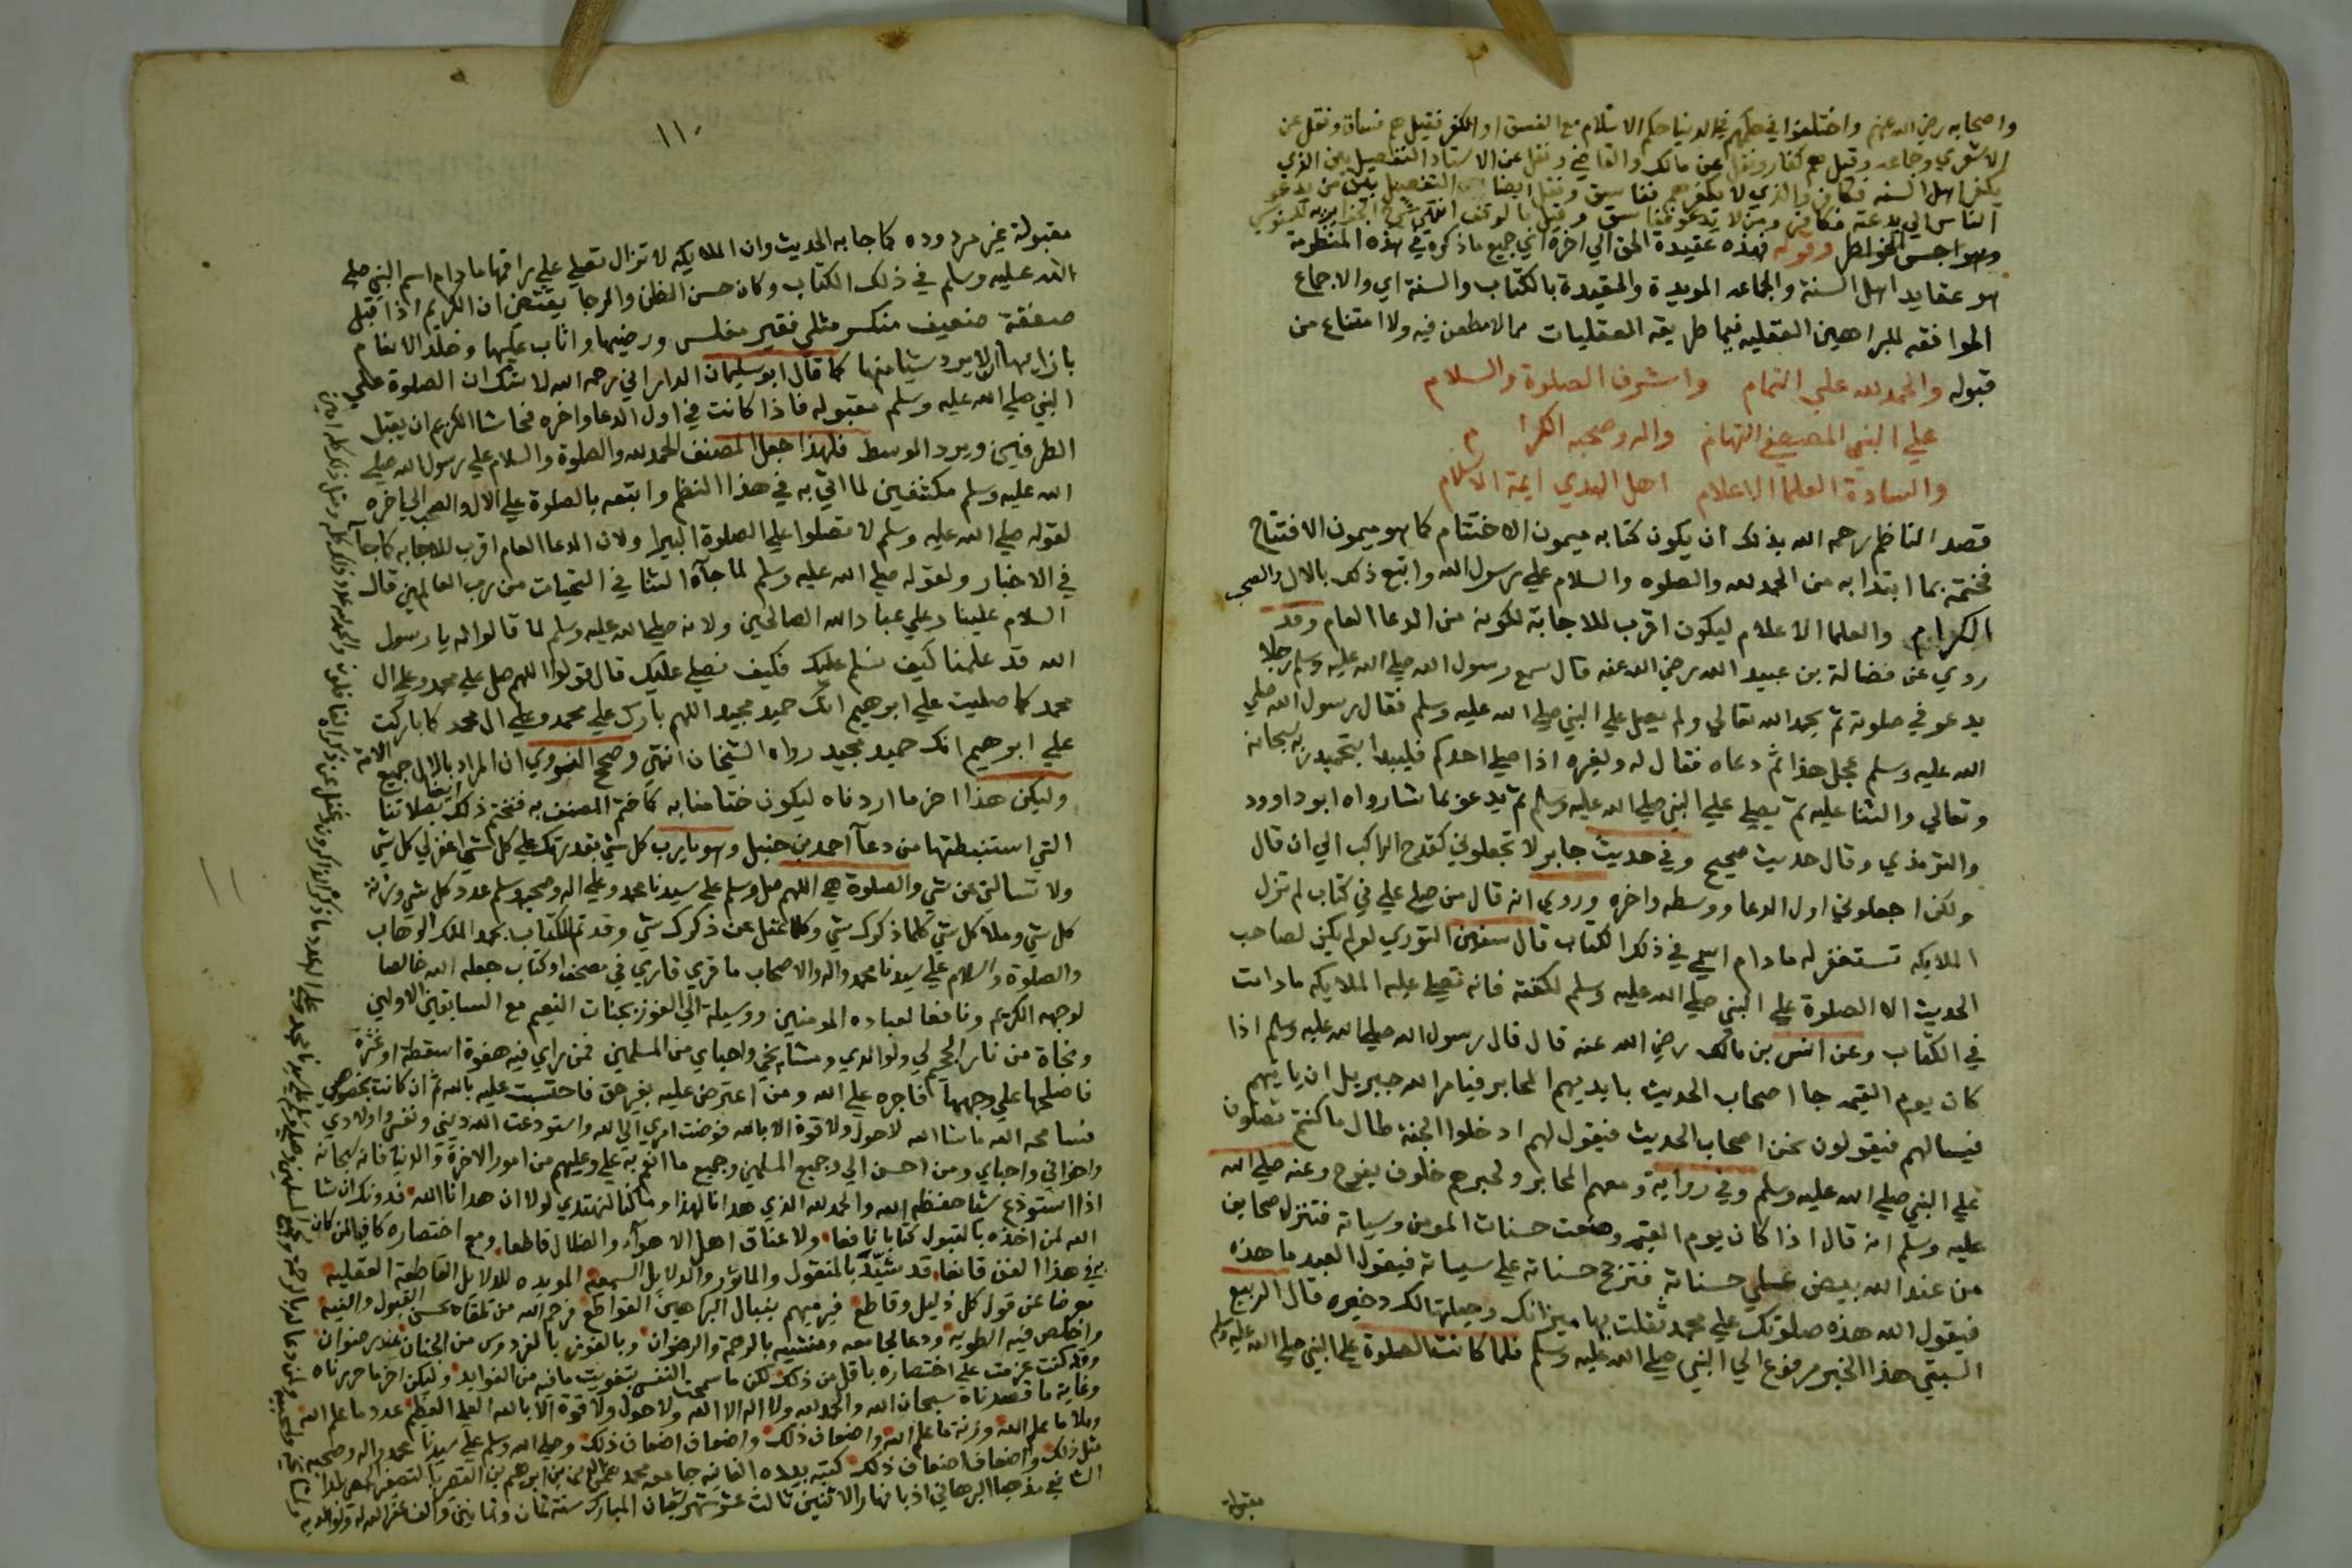 واصحابه رضي الله عنهم واختلفوا في حكمهم في الدنيا حكم الاسلام مع الفسق او الكفر فقيل هم فساق ونقل عن
الاشعري وجماعه وقيل هم كفار ونقل عن مالك والقاضي ونقل عن الاستاد التفصيل بين الذي
يكفر اهل السنه فكافر والذي لا يكفرهم ففاسق ونقل ايضا التفصيل بين من يدعو
الناس الي بدعته فكافر ومن لا يدعو ففاسق وقيل بالوقف انتهي شرح الجزايريه للسنوسي
وهواجس الخواطر وقوله فهذه عقيدة الحق الي اخره اي جميع ما ذكره في هذه المنظومة
هو عقايد اهل السنة والجماعه المويدة والمقيدة بالكتاب والسنة اي والاجماع
الموافقه للبراهين العقليه فيما طريقه العقليات مما لا مطعن فيه ولا امتناع من
قبوله والحمد لله علي التمام واشرف الصلوة والسلام
علي النبي المصطفي التهامي واله وصحبه الكرام
والسادة العلما الاعلام اهل الهدي ايمة الاسلام
قصد الناظم رحمه الله بذلك ان يكون كتابه ميمون الاختتام كما هو ميمون الافتتاح
فختمه بما ابتدا به من الحمد لله والصلوه والسلام علي رسول الله واتبع ذلك بالال والصحب
الكرام والعلما الاعلام ليكون اقرب للاجابة لكونه من الدعا العام وقد
روي عن فضالة بن عبيد الله رضي الله عنه قال سمع رسول الله صلي الله عليه وسلم رجلا
يدعو في صلوته ثم يحمد الله تعالي ولم يصل علي النبي صلي الله عليه وسلم فقال رسول الله صلي
الله عليه وسلم عجل هذا ثم دعاه فقال له ولغيره اذا صلي احدكم فليبدا بتحميد ربه سبحانه
وتعالي والثنا عليه ثم يصلي علي النبي صلي الله عليه وسلم ثم يدعو بما شا رواه ابو داوود
والترمذي وقال حديث صحيح وفي حديث جابر لا تجعلوني كقدح الراكب الي ان قال
ولكن اجعلوني اول الدعا ووسطه واخره وروي انه قال من صلي علي في كتاب لم تزل
الملايكه تستغفر له ما دام اسمي في ذلك الكتاب قال سفين الثوري لو لم يكن لصاحب
الحديث الا الصلوة علي النبي صلي الله عليه وسلم لكفته فانه تصلي عليه الملايكه ما دامت
في الكتاب وعن انس بن مالك رضي الله عنه قال قال رسول الله صلي الله عليه وسلم اذا
كان يوم القيمه جا اصحاب الحديث بايديهم المحابر فيامر الله جبريل ان ياتيهم
فيسالهم فيقولون نحن اصحاب الحديث فيقول لهم ادخلوا الجنة طال ما كنتم تصلون
علي النبي صلي الله عليه وسلم وفي رواية ومعهم المحابر ولحبرهم خلوف يفوح وعنه صلي الله
عليه وسلم انه قال اذا كان يوم القيمه وضعت حسنات المومن وسياته فتنزل صحايف
من عند الله بيض علي حسناته فترجح حسناته علي سياته فيقول العبد ما هذه
فيقول الله هذه صلوتك علي محمد ثقلت بها ميزانك وجعلتها لك دخيره قال الربيع
السبتي هذا الخبر مرفوع الي النبي صلي الله عليه وسلم فلما كانت الصلوة علي النبي صلي الله عليه وسلم
مقبولة
١١٠
مقبولة غير مردوده كما جا به الحديث وان الملايكه لا تزال تصلي علي راقمها ما دام اسم النبي صلي
الله عليه وسلم في ذلك الكتاب وكان حسن الظن والرجا يقتضي ان الكريم اذا قبل
صفقة ضعيف منكسر مثلي فقير مفلس ورضيها واثاب عليها وخلد الانعام
بازايها ان لا يرد شيا منها كما قال ابو سليمان الداراني رحمه الله لا شك ان الصلوة علي
النبي صلي الله عليه وسلم مقبوله فاذا كانت في اول الدعا واخره فحاشا الكريم ان يقبل
الطرفين ويرد الوسط فلهذا جعل المصنف الحمد لله والصلوة والسلام علي رسول الله صلي
الله عليه وسلم مكتنفين لما اتي به في هذا النظم واتبعه بالصلوة علي الال والصحب الي اخره
لقوله صلي الله عليه وسلم لا تصلوا علي الصلوة البترا ولان الدعا العام اقرب للاجابه كما جآ
في الاخبار ولقوله صلي الله عليه وسلم لما جآه الثنا في التحيات من رب العالمين قال
السلام علينا وعلي عباد الله الصالحين ولانه صلي الله عليه وسلم لما قالوا له يا رسول
الله قد علمنا كيف نسلم عليك فكيف نصلي عليك قال قولوا اللهم صل علي محمد وعلي ال
محمد كما صليت علي ابرهيم انك حميد مجيد اللهم بارك علي محمد وعلي ال محمد كما باركت
علي ابرهيم انك حميد مجيد رواه الشيخان انتهي وصحح النووي ان المراد بالال جميع الامة
وليكن هذا اخر ما اردناه ليكون ختامنا به كما ختم المصنف به فنختم ذلك ايضا بصلاتنا
التي استنبطتها من دعآ احمد بن حنبل وهو يا رب كل شي بقدرتك علي كل شي اغفر لي كل شي
ولا تسالني عن شي والصلوة هي اللهم صل وسلم علي سيدنا محمد وعلي اله وصحبه وسلم عدد كل شي وزنة
كل شي وملا كل شي كلما ذكرك شي وكلما غفل عن ذكرك شي وقد تم الكتاب بحمد الملك الوهاب
والصلوة والسلام علي سيدنا محمد واله والاصحاب ما قري قاري في مصحف او كتاب جعله الله خالصا
لوجهه الكريم ونافعا لعباده المومنين ووسيلة الي الفوز بجنات النعيم مع السابقين الاولين
ونجاة من نار الجحيم لي ولوالدي ومشايخي واحبابي من المسلمين فمن راي فيه هفوة اسقطة او عثرة
فاصلحها علي وجهها فاجره علي الله ومن اعترض عليه بغير حق فاحتسبت عليه بالله ثم ان كانت
فسامحه الله ما شا الله لا حول ولا قوة الا بالله فوضت امري الي الله واستودعت الله ديني ونفسي واولادي
واخواني واحبابي ومن احسن الي وجميع المسلمين وجميع ما انعم به علي وعليهم من امور الاخرة والدنيا فانه سبحانه
اذا استودع شيا حفظه الله والحمد لله الذي هدانا لهذا وما كنا لنهتدي لولا ان هدانا الله فدونك ان شا
الله لمن اخذه بالقبول كتابا نافعا ولاعناق اهل الاهوآء والضلال قاطعا ومع اختصاره كافيا لمن كان
في هذا الفن قانعا قد شيّد بالمنقول والماثور والدلايل السمعية المويده للدلايل القاطعة العقليه
معرضا عن قول كل ذليل وقاطع فيرميهم بنبال البراهين القواطع فرحم الله من تلقاه بحسن القبول والنيه
واخلص فيه الطويه ودعا لجامعه ومنشيه بالرحمة والرضوان وبالفوز بالفردوس من الجنان عند رضوان
وقد كنت عزمت علي اختصاره باقل من ذلك لكن ما سمحت النفس بتفويت ما فيه من الفوايد وليكن اخر ما حررناه
وغاية ما قصدناه سبحان الله والحمد لله ولا اله الا الله ولا حول ولا قوة الا بالله العلي العظيم عدد ما علم الله
وملا ما علم الله وزنة ما علم الله واضعاف ذلك واضعاف اضعاف ذلك وصلي الله وسلم علي سيدنا محمد واله وصحبه
مثل ذلك واضعاف اضعاف ذلك كتبه بيده الفانيه جامعه محمد بن ابرهيم
الشافعي مذهبا البرهاني نهار الاثنين ثالث عشر شهر شعبان المبارك سنة ثمان وثمانين والف غفر الله له ولوالديه